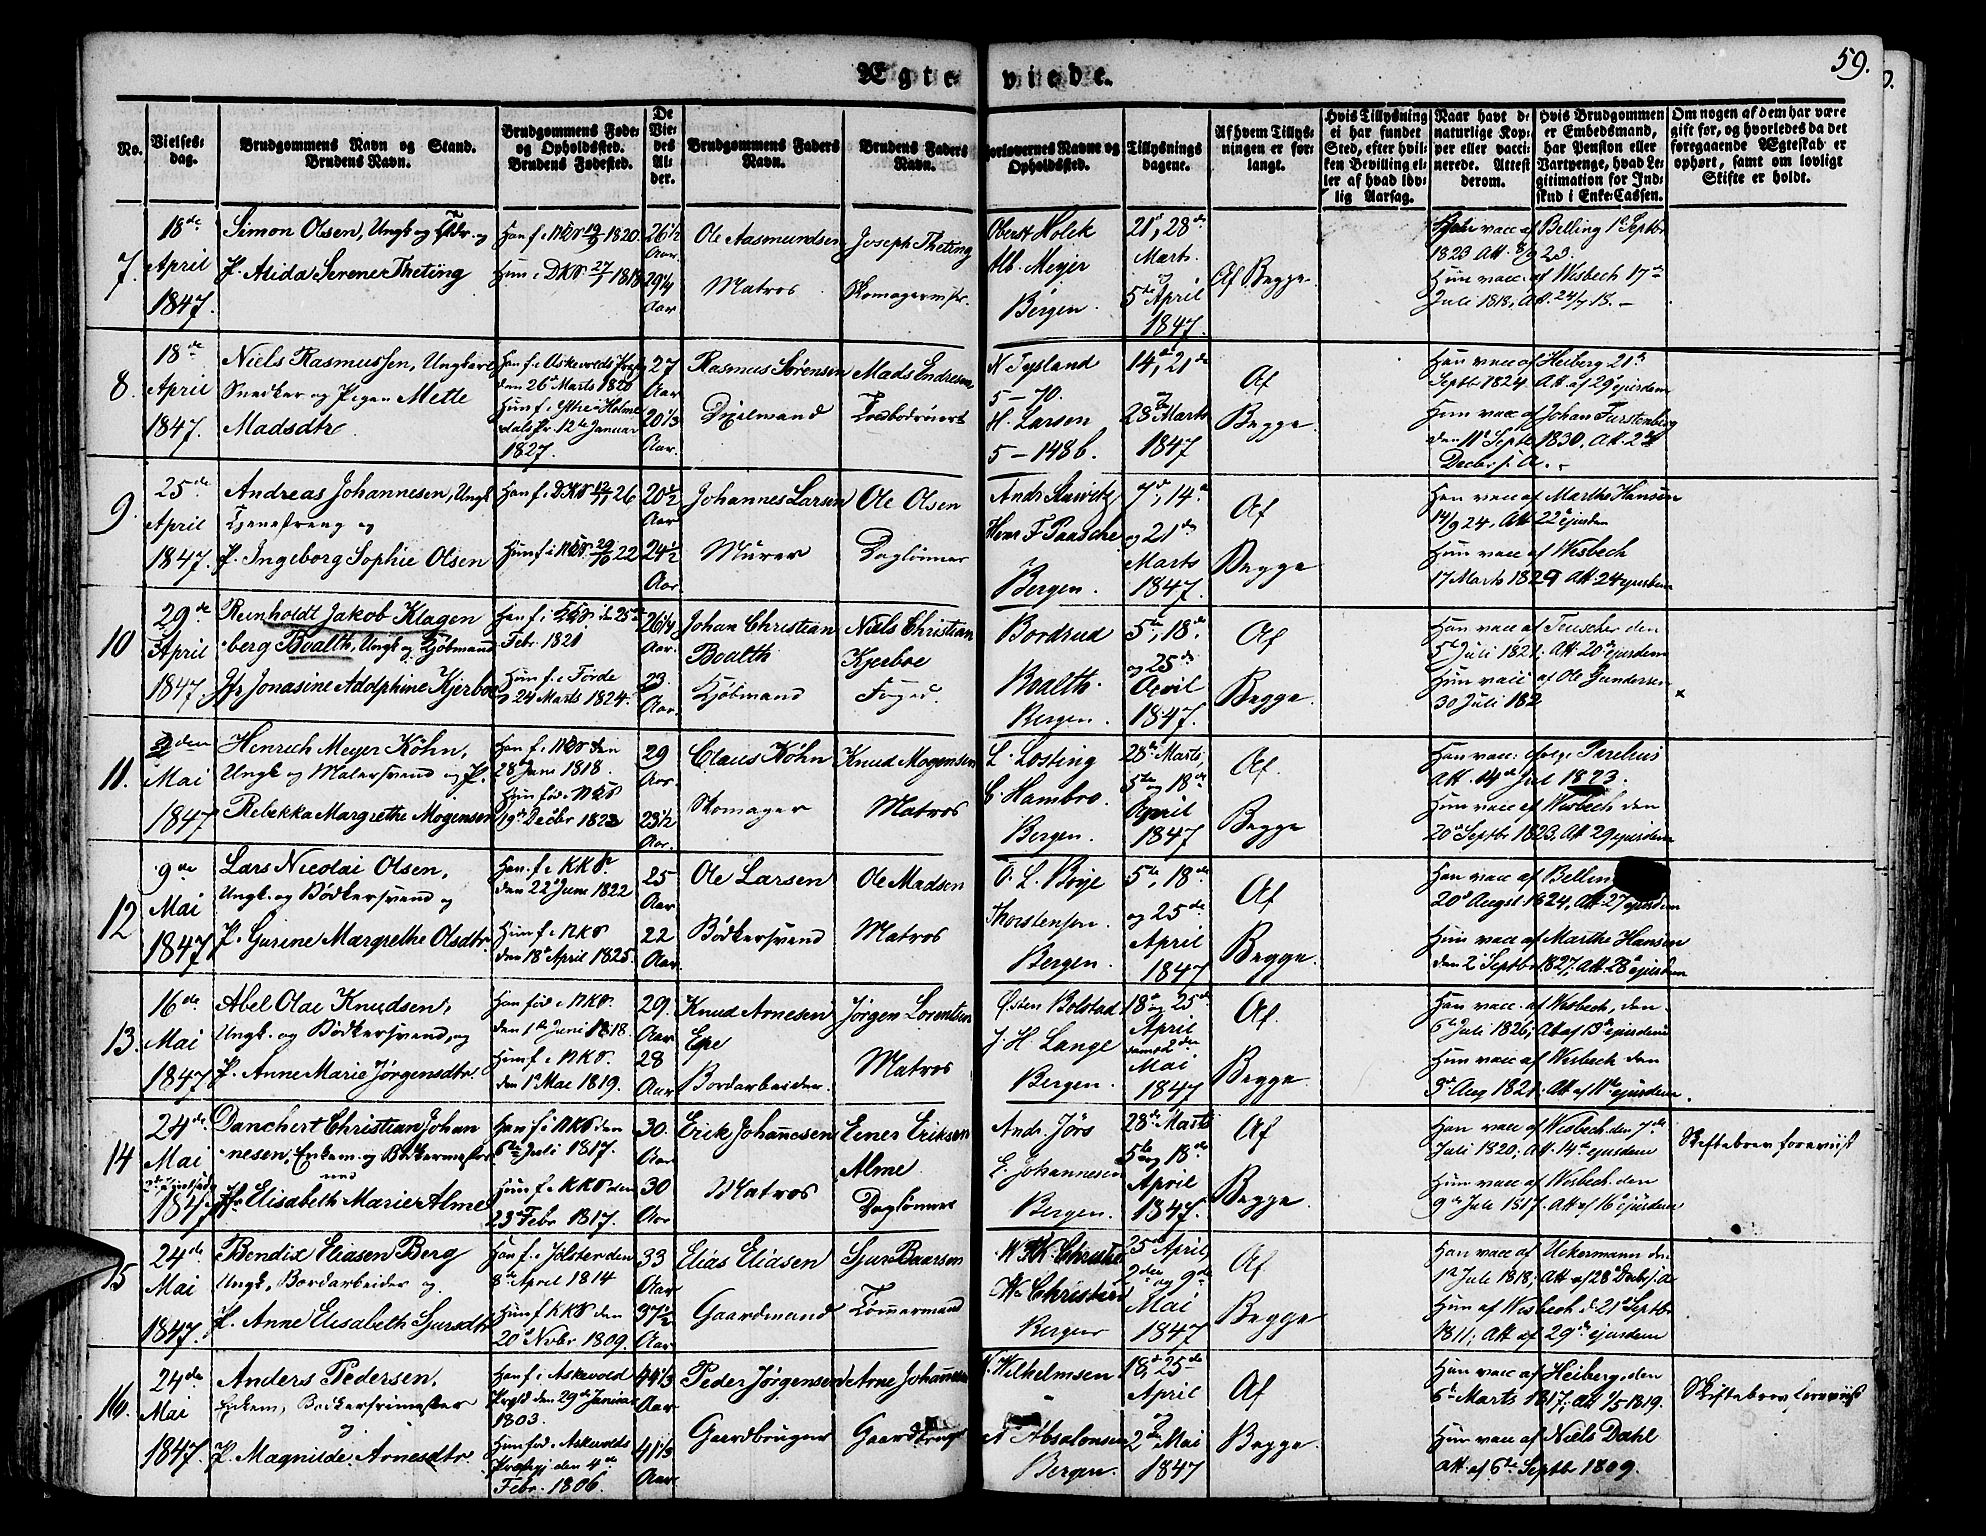 59.
Ægteviede.
No.
Vielses-
dag.
Brudgommens Navn og Stand.
Brudens Navn.
Brudgommens Føde-
og Opholdssted.
Brudens Fødested.
De
Vie-
des
Al-
der.
Brudgommens Faders
Navn.
Brudens Faders
Navn.
Forlovernes Navne og
Opholdssted.
Tillysnings
dagene.
Af hvem Tillys-
ningen er for-
langt.
Hvis Tillysning
ei har fundet
Sted, efter hvil-
ken Bevilling el-
ler af hvad lov-
lig Aarsag.
Naar havt de
naturlige Kop-
per eller vacci-
nerede. Attest
derom.
Hvis Brudgommen
er Embedsmand,
har Pension eller
Vartpenge, hvad Le-
gitimation for Ind-
skud i Enke-Cassen.
Om nogen af dem har være
gift før, og hvorledes da det
foregaaende Ægteskab er
ophørt, samt om lovligt
Skifte er holdt.
7.
18de
April
1847.
Simon Olsen, Ungk og
P. Alida Serene Theting
Han f. i NKS 19/9 1820.
Hun i DKS 27/7 1818
26 1/2
Aar
29 1/4
Aar
Ole Aasmundsen
Matros
Joseph Theting
Skomagermstr.
Oberst Holck
Alb. Meyer
Bergen.
21de, 28de
Marts
og
5te April
1847.
Af Begge.
Han vacc af Belling 1te Septbr
1823 Att. 8/9 23.
Hun vacc. af Wesbech 17de
Juli 1818, Att. 24/7 18.
8.
18de
April
1847.
Niels Rasmussen, Ungkarl
Snedker og Pigen Mette
Madsdtr
Han f. i Askevolds Prgj
den 26de Marts 1820
Hun f. i Yttre Holme
dals Pr. 12te Januar
1827.
27
Aar
20 1/3
Aar.
Rasmus Sørensen
Mads Endresen
N Tysland
5-70.
H. Larsen
5-1486.
14de, 21de
og
28de Marts
1847
Af
Begge.
Han vacc af Heiberg 21de
Septbr 1824 Att. af 29de ejusdem
Hun vacc af Johan Furstenberg
den 11te Septbr 1830, Att. 2de
Decbr s. A.
9
25de
April
1847.
Andreas Johannesen, Ungk
Tjenestreng og
P. Ingeborg Sophie Olsen
Han f. i DKS 12/11 26
Hun f. i NKS. 29/10 22
20 1/2
Aar
24 1/2
Aar.
Johannes Larsen
Murer
Ole Olsen
Daglønner
Henr F Paasche
Bergen.
7de, 14de
og 21de
Marts
1847.
Af
Begge
Han vacc af Marthe Hansen
14/9 24, Att. 22de ejusdem
Hun vacc af Wesbech
17 Marts 1829 Att. 24 ejusdem
10
29de
April
1847.
Reinholdt Jakob Klagen
berg Boalth, Ungk og Kjøbmand
Jfr Jonasine Adolphine Kjerboe
Febr. 1821
Hun f. i Førde
24 Marts 1824.
26 1/4
Aar.
23
Aar.
Johan Christian
Boalth
Kjøbmand
Niels Christian
Kjerboe
Foged.
Bordrud
Boalth.
Bergen.
5te, 18de
og 25de
April
1847.
Af
Begge.
Han vacc af Teuscher den
5te Juli 1821, Att. 20de ejusdem
Hun vacc af Ole Gundersen
30 Juli 182
11.
2den
Mai
1847
Henrich Meyer Köhn,
Ungk og Malersvend og P.
Rebekka Margrethe Mogensen
Han f. i NKS den
28de Juni 1818.
Hun fød i NKS
19de Decbr 1823
29
Aar.
23 1/2
Aar.
Claus Köhn
Skomager
Knud Mogensen
Matros
L. Losting
C. Hambro.
Bergen.
28de Marts,
5te og 18de
April
1847
Af.
Begge
Att. 14de Jul 1823.
Hun vacc af Wesbech den
20de Septbr 1823. Att. 29 ejusdem
12
9de
Mai
1847
Lars Nicolai Olsen,
Ungk. og Bødkersvend og
P. Gurine Margrethe Olsdtr
Han f. i KKS
den 22de Juni 1822
Hun f. i NKS
den 18de April 1825.
25
Aar.
22
Aar.
Ole Larsen
Bødkersvend
Ole Madsen
Matros
O. L. Boije
Thorstensen.
Bergen.
5te, 18de
og 25de
April
1847
Af
Begge.
Han vacc af Bellin
20de Augst 1824, Att. 27 ejusdem
Hun vacc af Marthe Hansen
den 2 Septbr 1827, Att. 28de ejusdem
13.
16de
Mai
1847
Abel Olai Knudsen,
Ungk. og Bødkersvend, og
P. Anne Marie Jørgensdtr.
Han fød i NKS.
den 1te Juni 1818.
Hun f. i NKS.
den 1te Mai 1819.
29.
Aar
28
Aar
Knud Arnesen
Epe
Bordarbeider.
Jørgen Lorentsen
Matros
Østen Bolstad
J. H. Lange
Bergen.
18de og 25de
April
samt 2den
Mai
1847
Af.
Begge.
Han vacc. af Wesbech, den
6te Juli 1826, Att af 13de ejusdem
Hun vacc af Wesbech den
3de Aug 1821. Att af 11te ejusdem.
14
24de
Mai
2den Pintsedag
1847
Danchert Christian Johan
nesen, Enkem. og Bødkermester
med
Jfr Elisabeth Marie Alme
Han f. i NKS den
6te Juli 1817.
Hun f. i KKS den
23de Febr 1817.
30.
Aar
30
Aar
Erik Johannesen
Matros
Einer Eriksen
Alme.
Daglønner
Andr. Jörs
E. Johannesen
Bergen.
28de Marts
5te og 18de
April
1847.
Af
Begge.
Han vacc af Wesbech den 7de
Juli 1820; Att. 14de ejusdem
Hun vacc. af Wesbech den
9de Juli 1817. Att af 16de ejusdem
Skiftebrev foreviist
15
24de
Mai
1847.
Bendix Eliasen Berg
Ungk., Bordarbeider og
P. Anne Elisabeth Sjursdtr
Han f. i Jølster den
8de April 1814
Hun f. KKS den
20de Novbr 1809.
33
Aar
37 1/2
Aar
Elias Eliasen
Gaardmand
Sjur Baarsen
Tømmermand
W. Christie
Bergen
25de April
2den og 9de
Mai
1847
Af
Begge
Han vacc af Uckermann den
1te Juli 1818; Att af 28de Decbr s. A.
Hun af Wesbech d. 21de Septbr
1811; Att af 29de ejusdem
16.
24de
Mai
1847.
Anders Pedersen,
Enkem., Bødkersvimester
og
P. Magnilde Arnesdtr.
Han f. i Askevold
Prgld den 29de Januar
1803.
Hun fød i Askevolds
Præstgj den 4de
Febr. 1806.
44 1/3
Aar
41 1/3
Aar.
Peder Jørgensen
Gaardbruger
Arne Johannesen
Gaardbruger
W. Wilhelmsen
A Absalonsen
Bergen.
18de, 25de
April
og
2den Mai
1847
Af
Begge.
Han vacc af Heiberg, den
6te Marts 1817; Att 1/5 1819.
Hun vacc af Niels Dahl
Att. af 6te Septbr 1809.
Skiftebrev foreviist